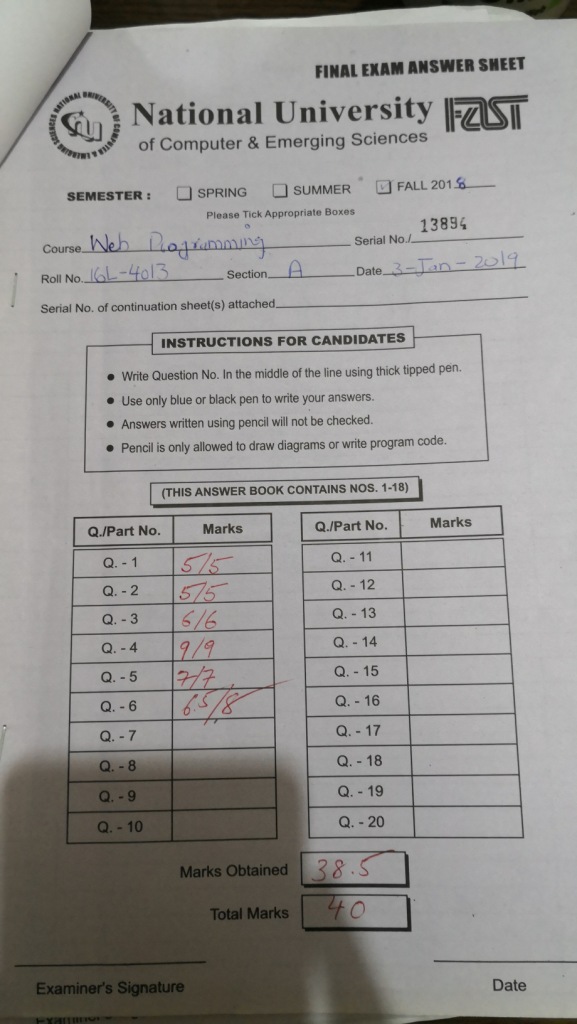 FINAL EXAM ANSWER SHEET
NATIONAL UNIVERSITY OF COMPUTER & EMERGING SCIENCES
National University FAST
of Computer & Emerging Sciences
SEMESTER : SPRING SUMMER FALL 2018
Please Tick Appropriate Boxes
13894
Course Web Programming Serial No./
Roll No. 16L-4013 Section A Date 3-Jan-2019
Serial No. of continuation sheet(s) attached
INSTRUCTIONS FOR CANDIDATES
● Write Question No. In the middle of the line using thick tipped pen.
● Use only blue or black pen to write your answers.
● Answers written using pencil will not be checked.
● Pencil is only allowed to draw diagrams or write program code.
(THIS ANSWER BOOK CONTAINS NOS. 1-18)
Q./Part No. Marks Q./Part No. Marks
Q. - 1 5/5 Q. - 11
Q. - 2 5/5 Q. - 12
Q. - 3 6/6 Q. - 13
Q. - 4 9/9 Q. - 14
Q. - 5 7/7 Q. - 15
Q. - 6 6.5/8 Q. - 16
Q. - 7 Q. - 17
Q. - 8 Q. - 18
Q. - 9 Q. - 19
Q. - 10 Q. - 20
Marks Obtained 38.5
Total Marks 40
Examiner's Signature Date